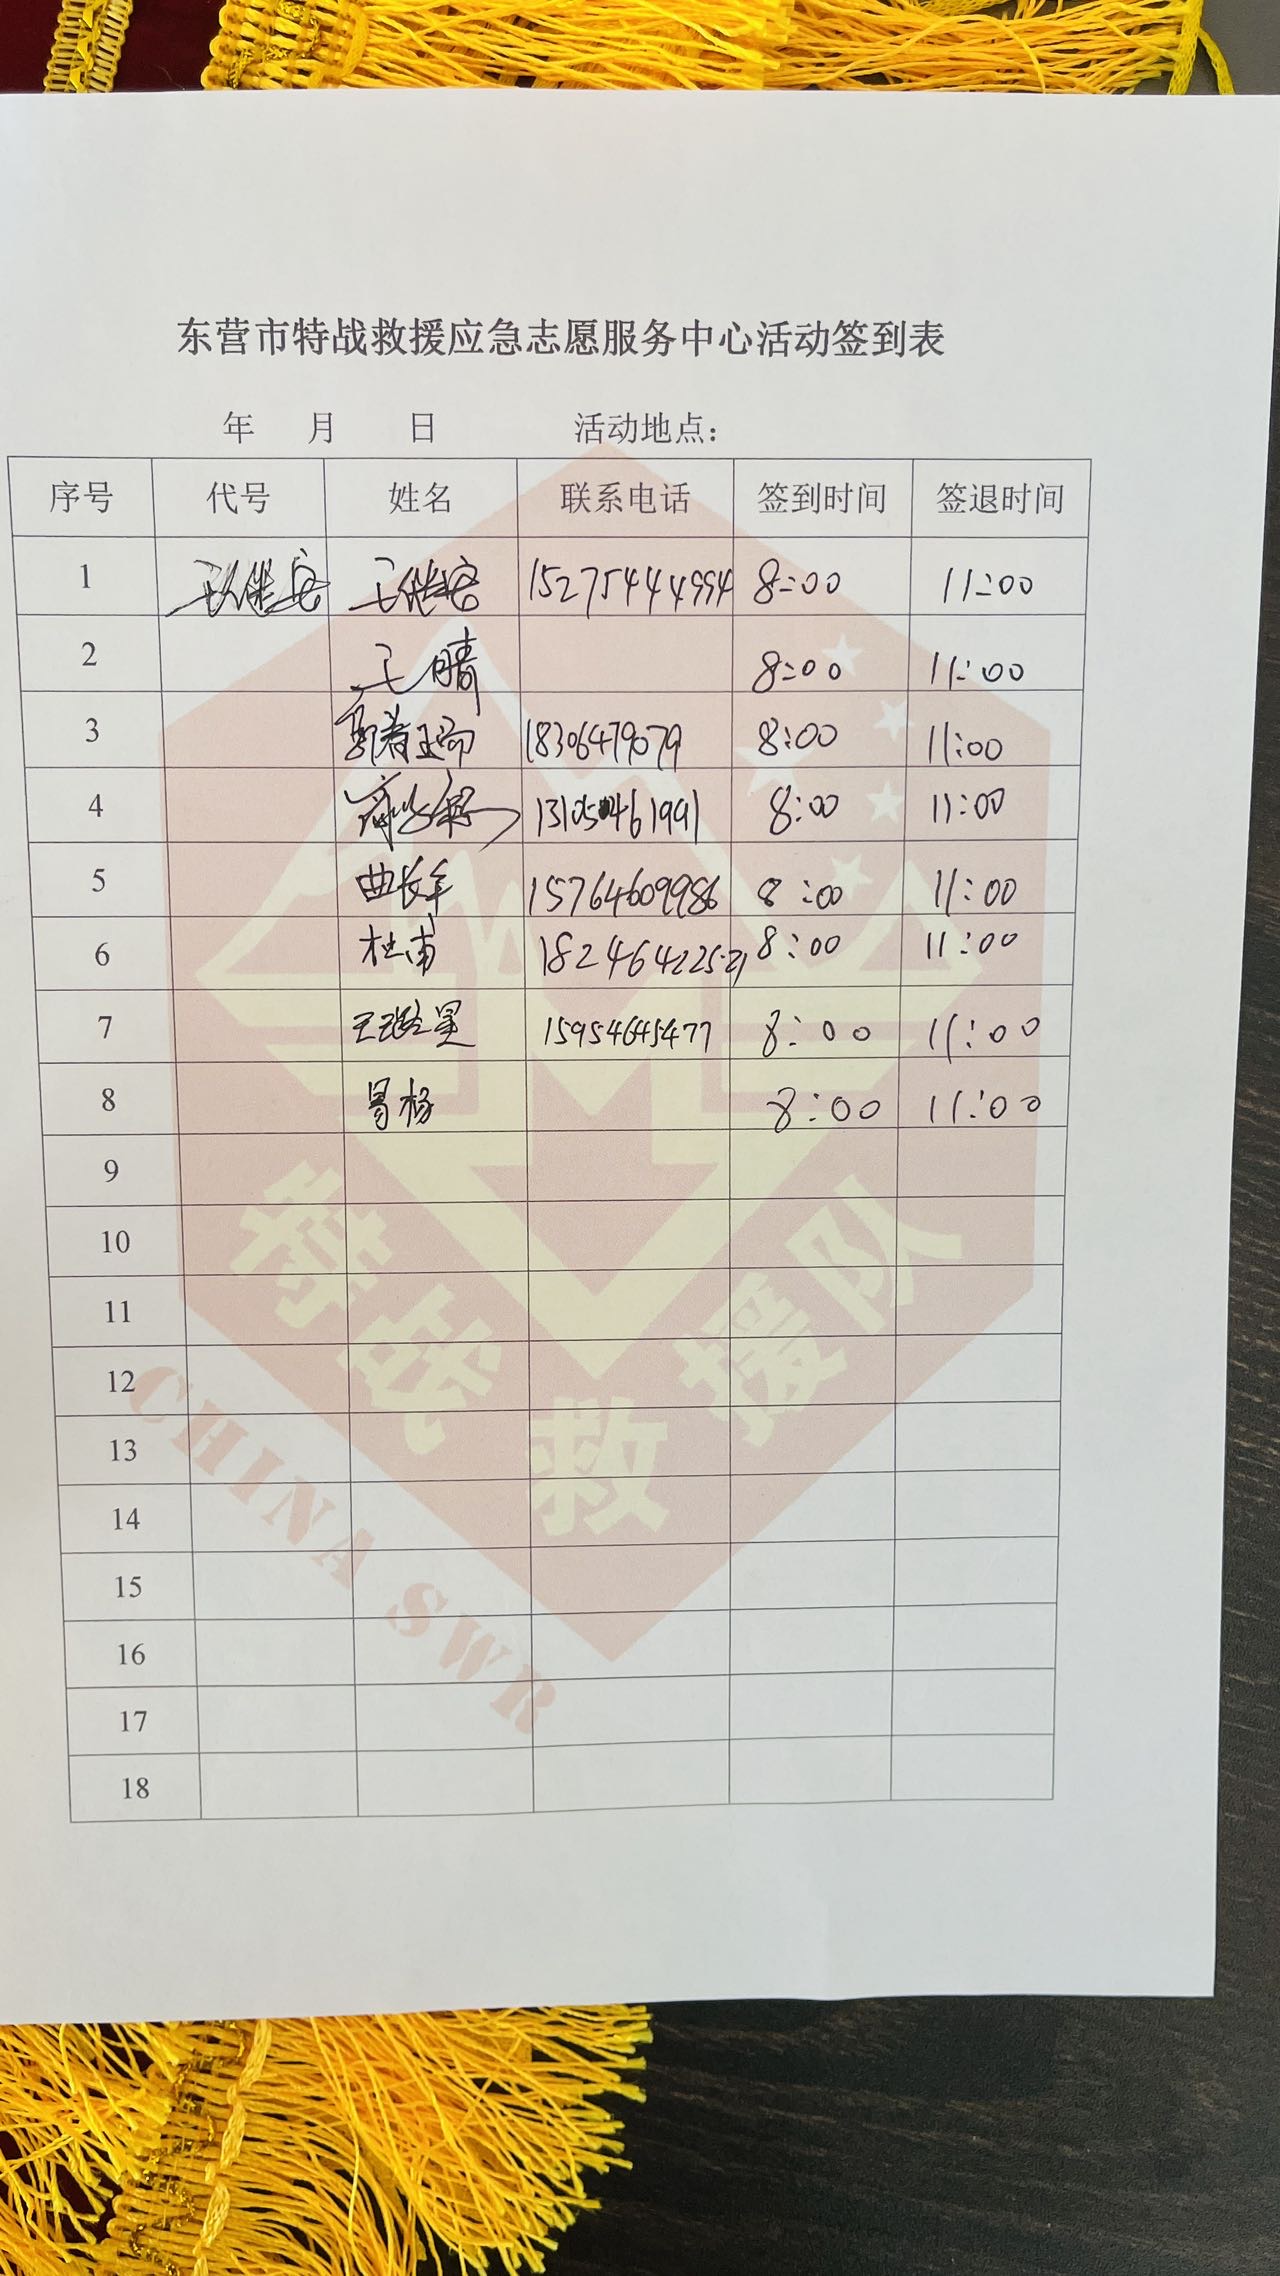 东营市特战救援应急志愿服务中心活动签到表
年 月 日 活动地点：
序号 代号 姓名 联系电话 签到时间 签退时间
1 王继安 15275444994 8:00 11:00
2 王晴 8:00 11:00
3 18306479079 8:00 11:00
4 13105461991 8:00 11:00
5 曲长军 15764609986 8:00 11:00
6 杜甫 18246422521 8:00 11:00
7 15954645477 8:00 11:00
8 冒杨 8:00 11:00
9
10
11
12
13
14
15
16
17
18
特战救援队
CHINA SWR